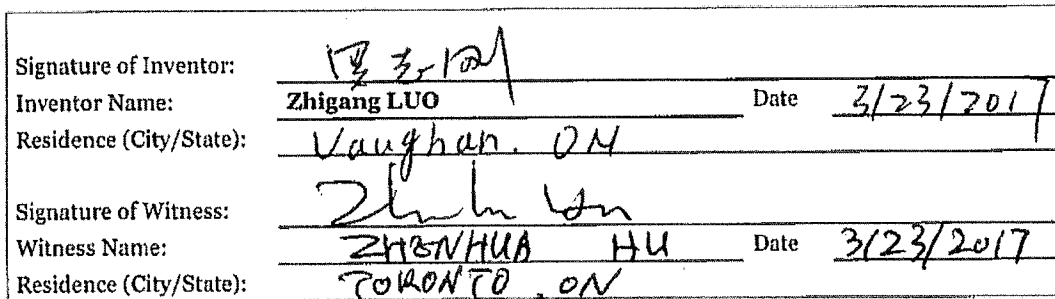 Signature of Inventor: 罗志刚
Inventor Name: Zhigang LUO Date 3/23/2017
Residence (City/State): Vaughan. ON
Signature of Witness:
Witness Name: ZHENHUA HU Date 3/23/2017
Residence (City/State): TORONTO, ON